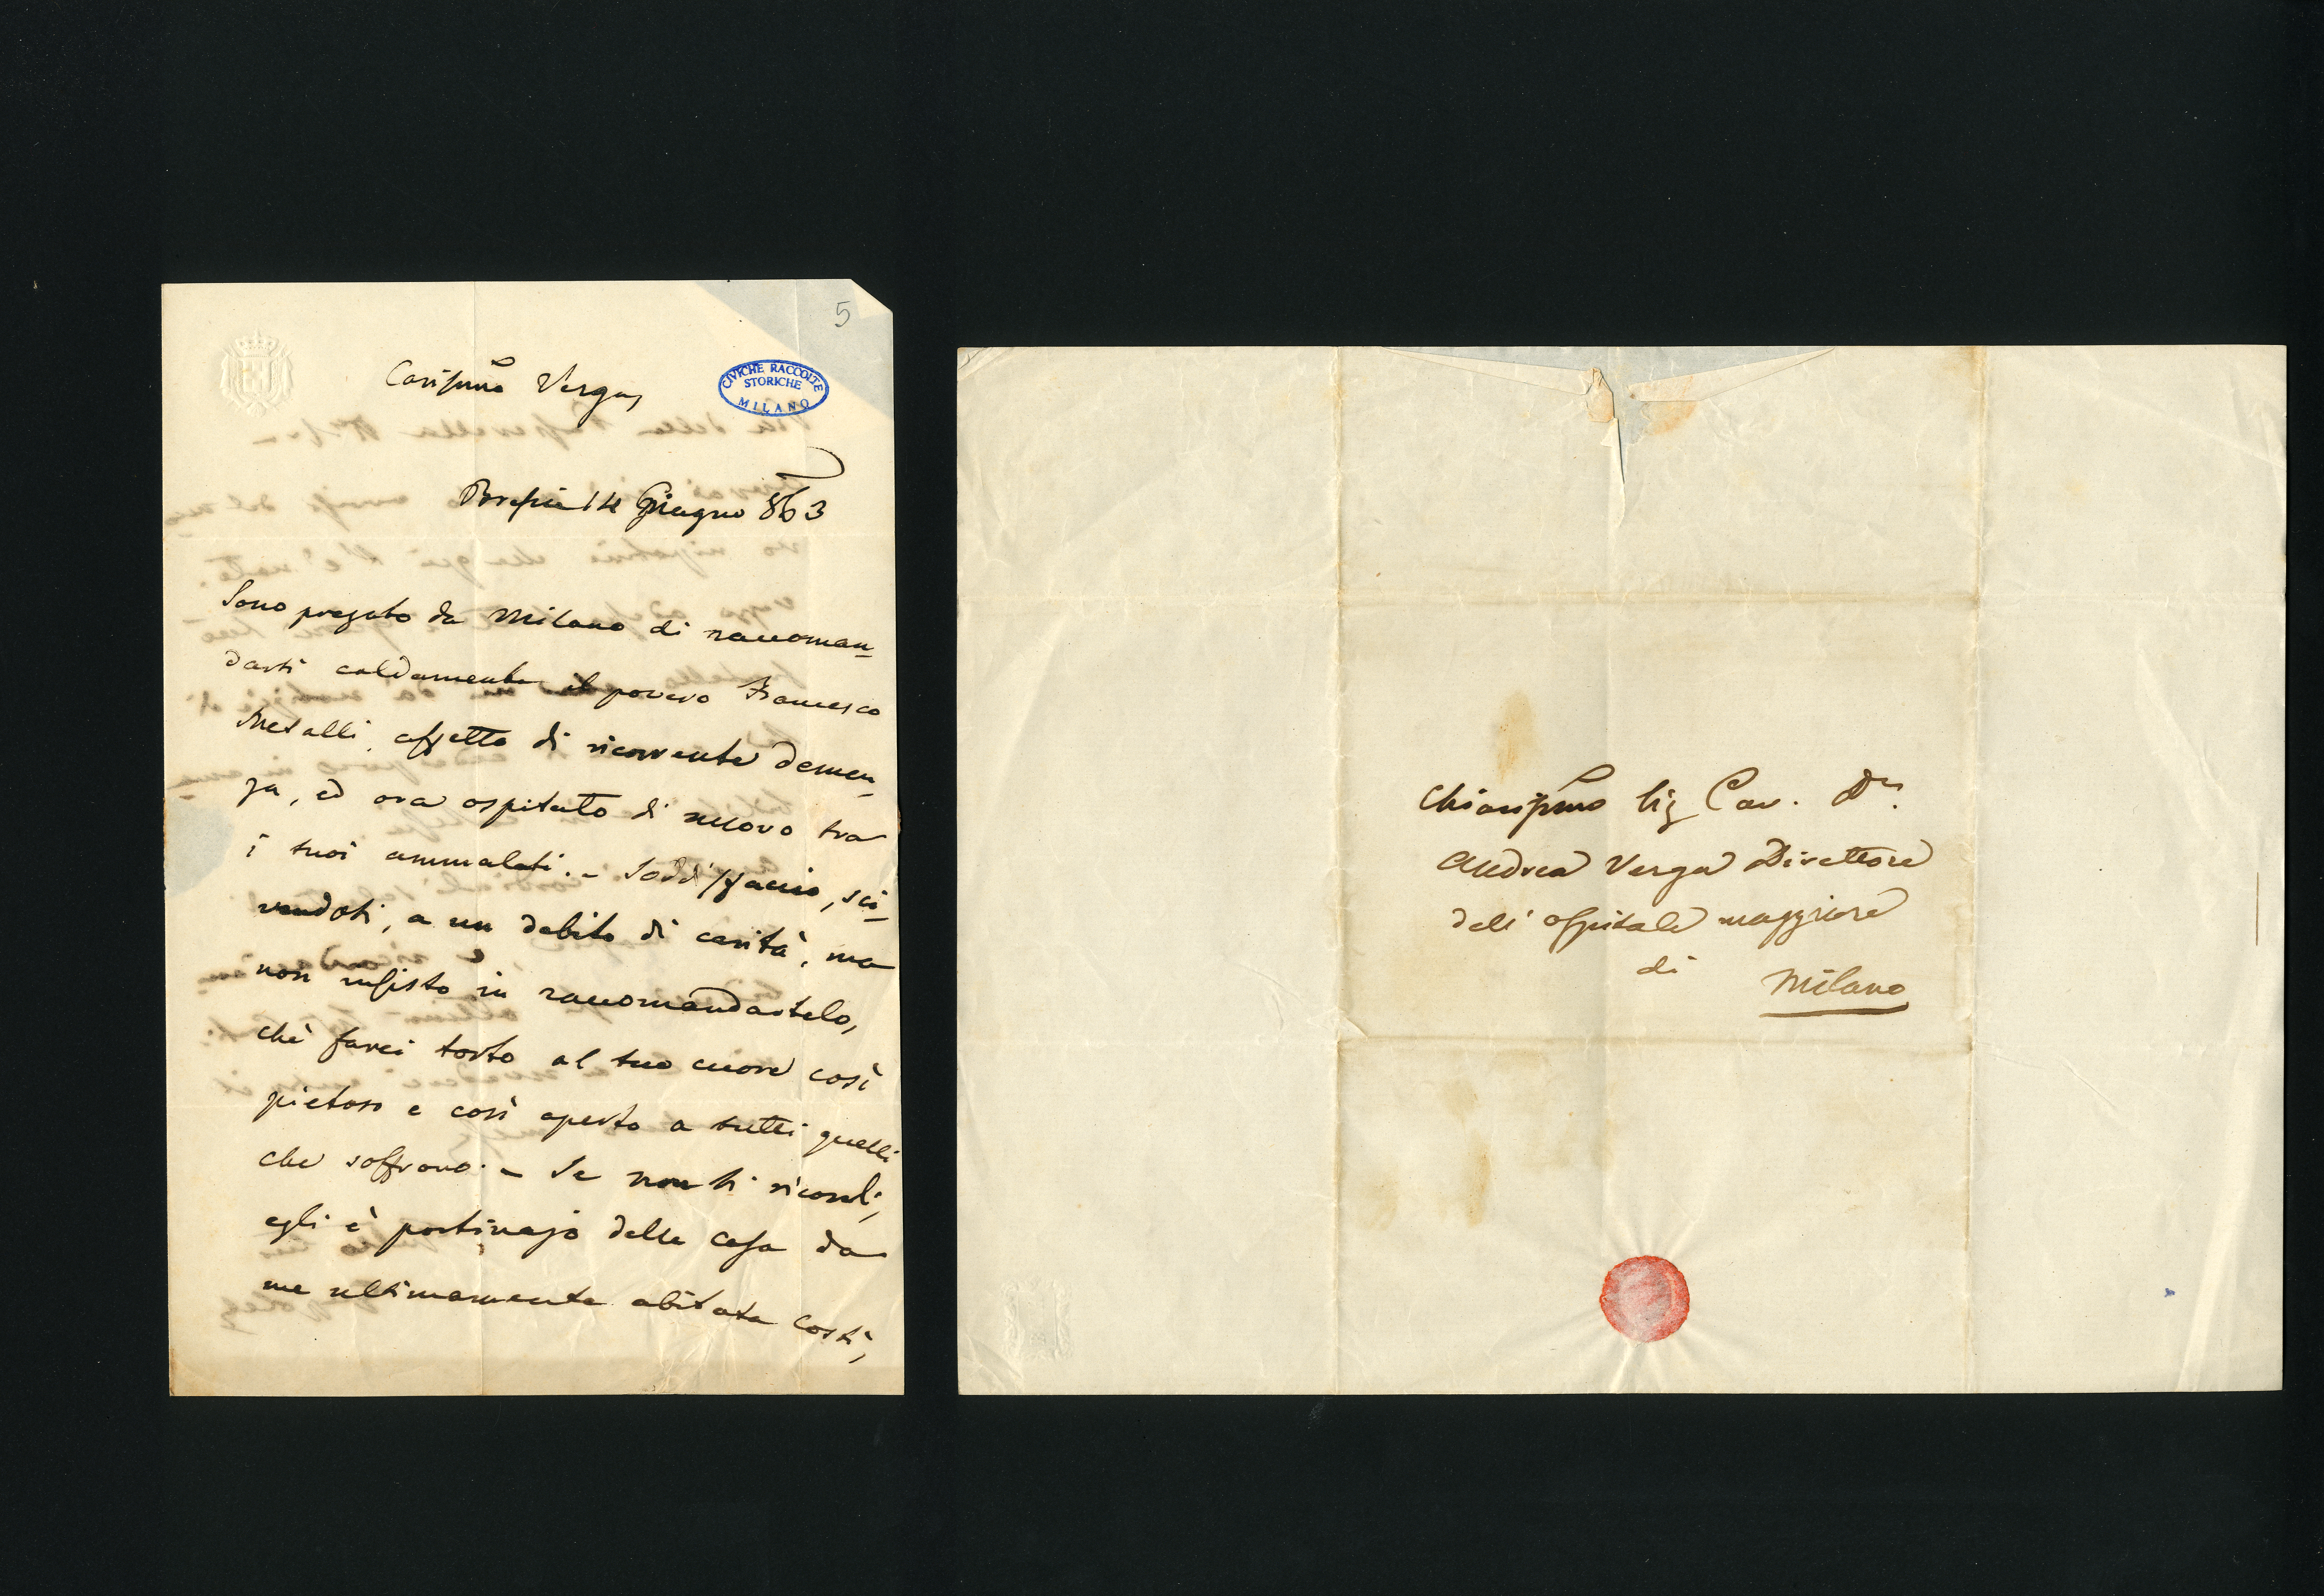 5
Carissimo Verga,
CIVICHE RACCOLTE
STORICHE
MILANO
Brescia 14 Giugno 863
Sono pregato da Milano di raccoman-
darti caldamente il povero Francesco
Metalli, affetto di ricorrente demen-
za, ed ora ospitato di nuovo tra
i tuoi ammalati. - Soddisfaccio, scri-
vendoti, a un debito di carità, ma
non insisto in raccomandartelo,
chè farei torto al tuo cuore così
pietoso e così aperto a tutti quelli
che soffrono. - Se non ti ricordi,
egli è portinajo della casa da
me ultimamente abitata costì,
Chiarissimo Sig Cav. Dr.
Andrea Verga Direttore
dell' Ospitale maggiore
di Milano